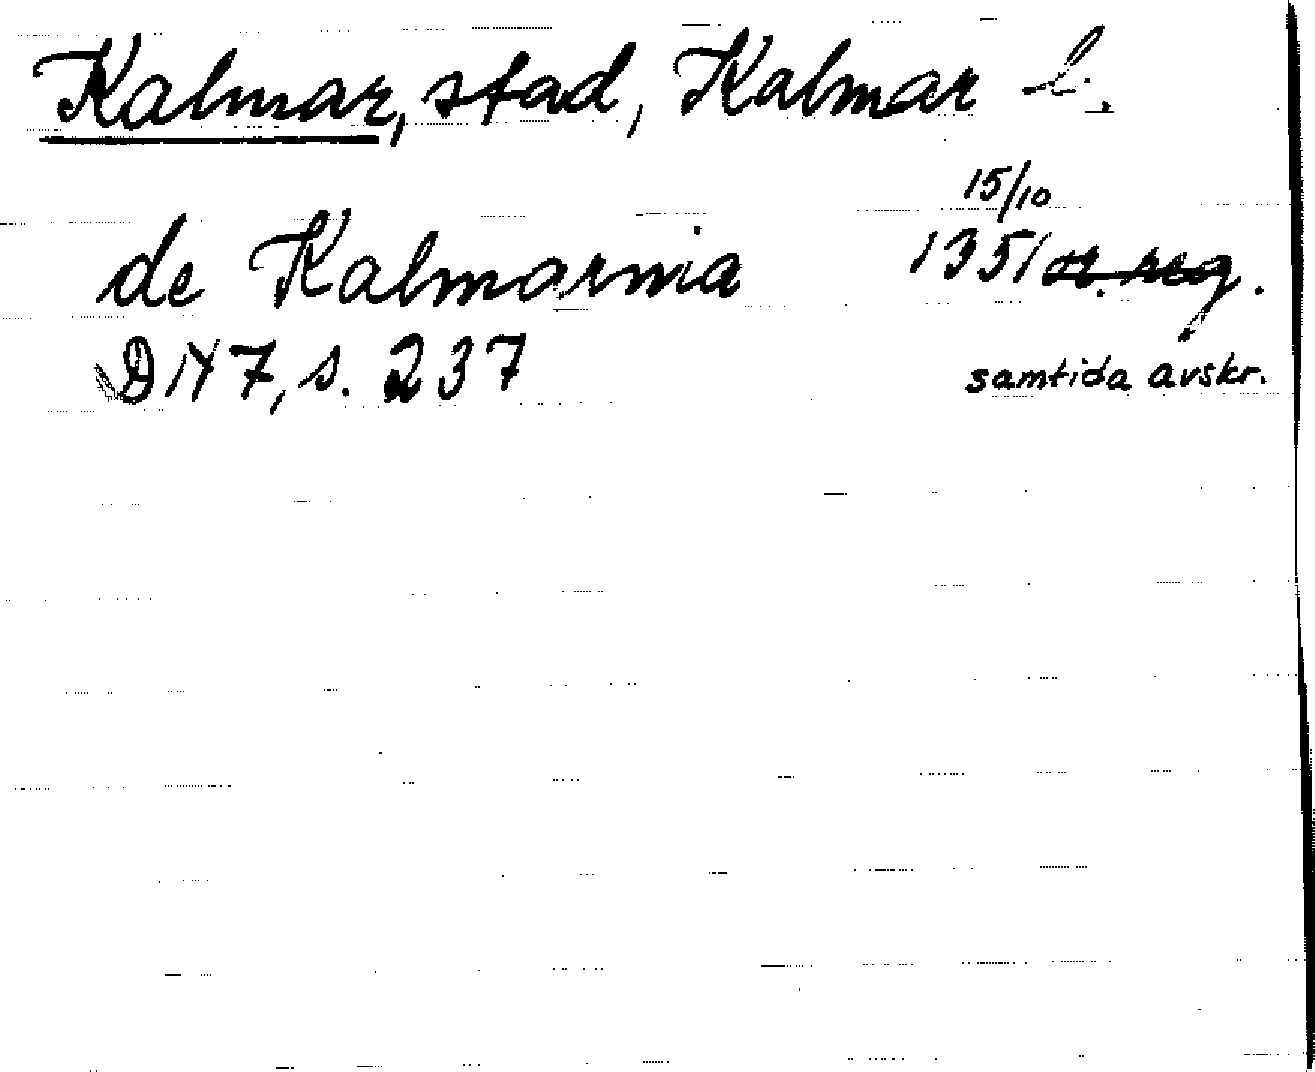 Kalmar, stad, Kalmar l.
15/10
de Kalmarnia 1351 or. reg.
DN 7, s. 237 samtida avskr.